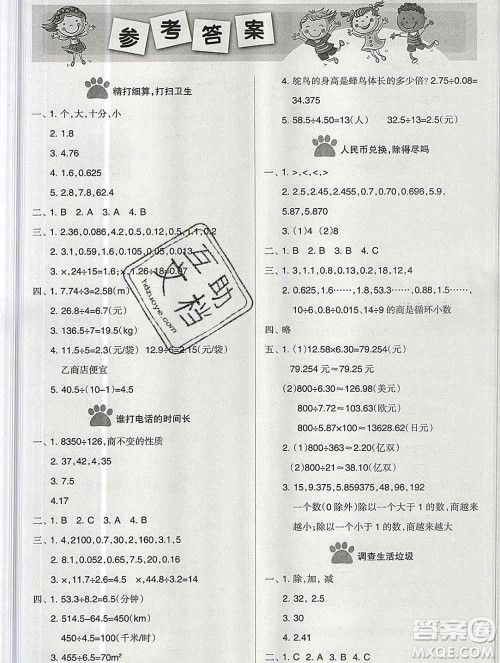 参考答案
精打细算,打扫卫生
一、1. 个,大,十分,小
2. 1.8
3. 4.76
4. 1.6,0.625
5. 2.8,7.8,62.4
二、1. B 2. A 3. A 4. B
三、1. 2.36,0.086,4.2,0.06,0.15,1.1,0.2
2. 3.1,0.59,0.43,0.15,0.35,0.17
3. ×,24÷15= ×,1.26÷18=0.07
四、1. 7.74÷3=2.58(m)
2. 26.8÷4=6.7(元)
3. 136.5÷7=19.5(kg)
4. 11.5÷5=2.3(元/袋) 12.9÷6=2.15(元/袋)
乙商店便宜
5. 40.5÷(10-1)=4.5
谁打电话的时间长
一、1. 8350÷126,商不变的性质
2. 37,4.2
3. 7.5
4. 17
二、1. B 2. C 3. A 4. C
三、1. 0.7,4,30,0.9,21,2,160,3.1,5
2. 8.1,0.065,2.5,0.48,20.5,2.08
3. ×,11.7÷2.6=4.5 ×,44.8÷3.2=14
四、1. 53.3÷8.2=6.5(分钟)
2. 514.5-64.5=450(km)
450÷4.5=100(千米/时)
3. 457.6÷6.5=70m²
4. 鸵鸟的身高是蜂鸟体长的多少倍? 2.75÷0.08=
34.375
5. 58.5÷4.50=13(人) 32.5÷13=2.5(元)
人民币兑换,除得尽吗
一、1. >,<,<,>
2. 2.5,2.45,2.455,0.7,0.69,0.690,5.9,
5.87,5.870
3. (1)4 (2)8
二、1. B 2. C 3. A 4. B
三、1. 3,3.1,3.14,3.142,0.4,0.36,0.364
2. 0.625,1.8333……,6.8585……,0.6428……,
10÷6,0.8÷0.015,14÷9的商是循环小数
四、略
五、1. (1)12.58×6.30=79.254≈79.254(元)
可能是英镑
(2)800÷6.30≈126.98(美元)
800÷0.0587≈13628.62(日元)
2. (1)800÷15≈53.33(亿双)
(2)800÷21≈38.10(亿双)
3. 15,9.9375,5.958,48,96,192
一个数(0除外)除以一个大于1的数,商越来
越小;除以一个小于1的数,商越来越大
调查生活垃圾
一、1. 除,加,减
2. 32,2.5
3. 0.5
4. 29.01
二、1. B 2. C 3. C 4. B
答案圈
MXQE.COM
互助文档
hdzuoye.com